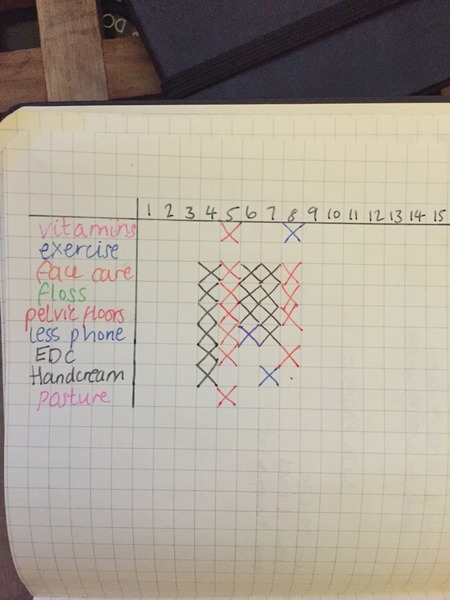 DC
1 2 3 4 5 6 7 8 9 10 11 12 13 14 15
vitamins
exercise
face care
floss
pelvic floors
less phone
EDC
Handcream
posture